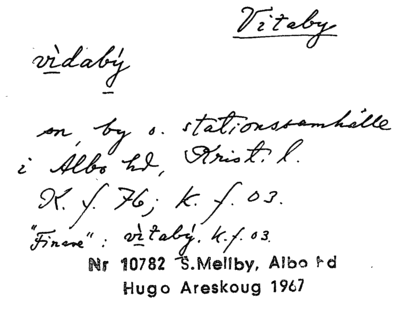 Vitaby
vìdabý
sn, by o. stationssamhälle
i Albo hd, Krist. l.
K. f. 76; k. f. 03.
"Finare": vìtabý. k. f. 03.
Nr 10782 S.Mellby, Albo hd
Hugo Areskoug 1967